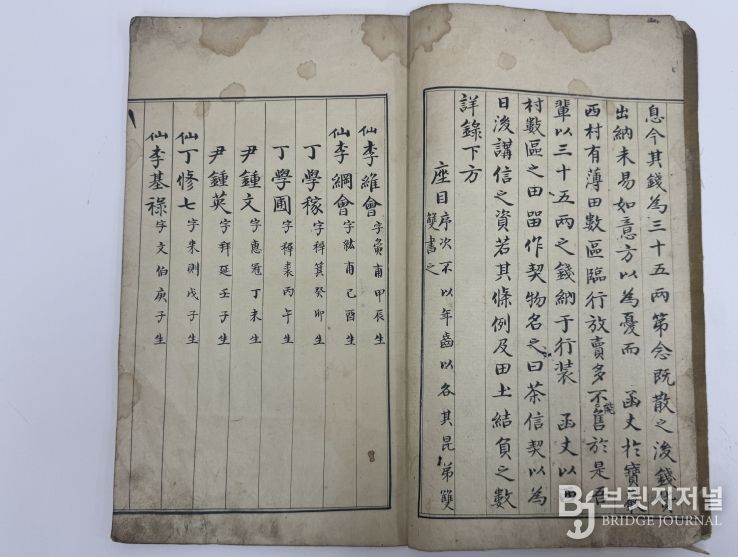 息今其錢為三十五兩第念既散之後錢
出納未易如意方以為憂而 函丈於寶
西村有薄田數區臨行放賣多不能售於是吾
輩以三十五兩之錢納于行裝 函丈以
村數區之田留作契物名之曰茶信契以為
日後講信之資若其條例及田土結負之數
詳錄下方
座目 序次不以年齒以各其昆弟雙
雙書之
仙 李維會 字 甫甲辰生
仙 李綱會 字紘甫己酉生
丁學稼 字稺箕癸卯生
丁學圃 字稺裘丙午生
尹鍾文 字惠冠丁未生
尹鍾英 字拜延壬子生
仙 丁修七 字來則戊子生
仙 李基祿 字文伯庚子生
브릿지저널
BRIDGE JOURNAL